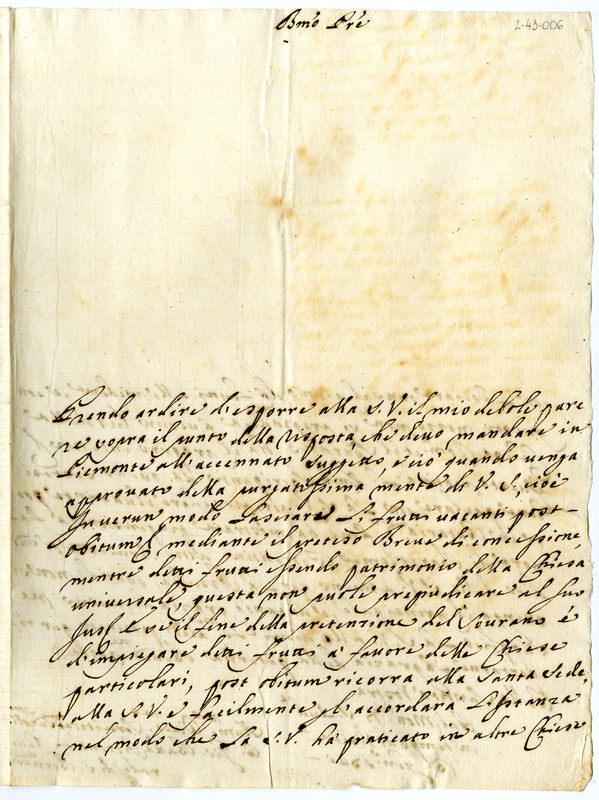 Bmo Pre
2-43-006
Prendo ardire d'esporre alla S. V. il mio debole pare
re sopra il punto della risposta, che devo mandare in
Piemonte all'accennato suggetto, e ciò quando venga
approvato della purgatissima mente di V. S., cioè
In verun modo lasciare li frutti vacanti post-
obitum mediante il preteso Breve di concessione,
mentre detti frutti essendo patrimonio della Chiesa
universale, questa non vuole pregiudicare al suo
Jus. E se il fine della pretenzione del Sourano é
d'impiegare detti frutti a' favore delle Chiese
particolari, post obitum ricorra alla Santa Sede,
alla S. V. e facilmente gl'accordarà l'Istanza
nel modo che la S. V. ha praticato in altre Chiese